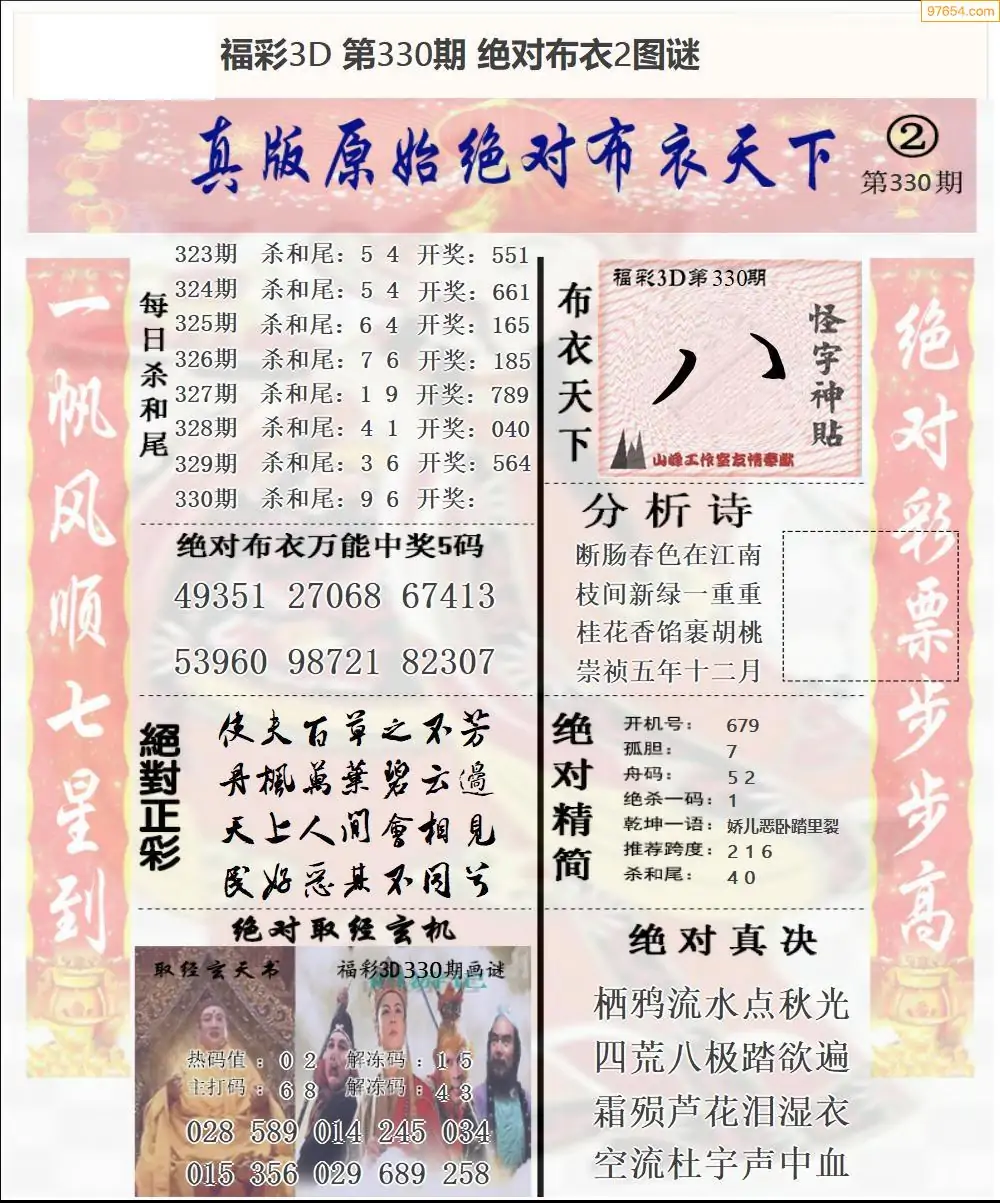 97654.com
福彩3D 第330期 绝对布衣2图谜
真版原始绝对布衣天下
②
第330期
一帆风顺七星到
每日杀和尾
323期 杀和尾：5 4 开奖：551
324期 杀和尾：5 4 开奖：661
325期 杀和尾：6 4 开奖：165
326期 杀和尾：7 6 开奖：185
327期 杀和尾：1 9 开奖：789
328期 杀和尾：4 1 开奖：040
329期 杀和尾：3 6 开奖：564
330期 杀和尾：9 6 开奖：
绝对布衣万能中奖5码
49351 27068 67413
53960 98721 82307
絕對正彩
使夫百草之不芳
丹楓萬葉碧云邊
天上人间會相見
民好恶其不同兮
绝对取经玄机
取经玄天书
福彩3D330期画谜
热码值：0 2 解冻码：1 5
主打码：6 8 解冻码：4 3
028 589 014 245 034
015 356 029 689 258
布衣天下
福彩3D第330期
八
怪字神貼
山峰工作室友情奉献
分析诗
断肠春色在江南
枝间新绿一重重
桂花香馅裹胡桃
崇祯五年十二月
绝对精简
开机号：679
孤胆：7
舟码：5 2
绝杀一码：1
乾坤一语：娇儿恶卧踏里裂
推荐跨度：2 1 6
杀和尾：4 0
绝对真决
栖鸦流水点秋光
四荒八极踏欲遍
霜殒芦花泪湿衣
空流杜宇声中血
绝对彩票步步高